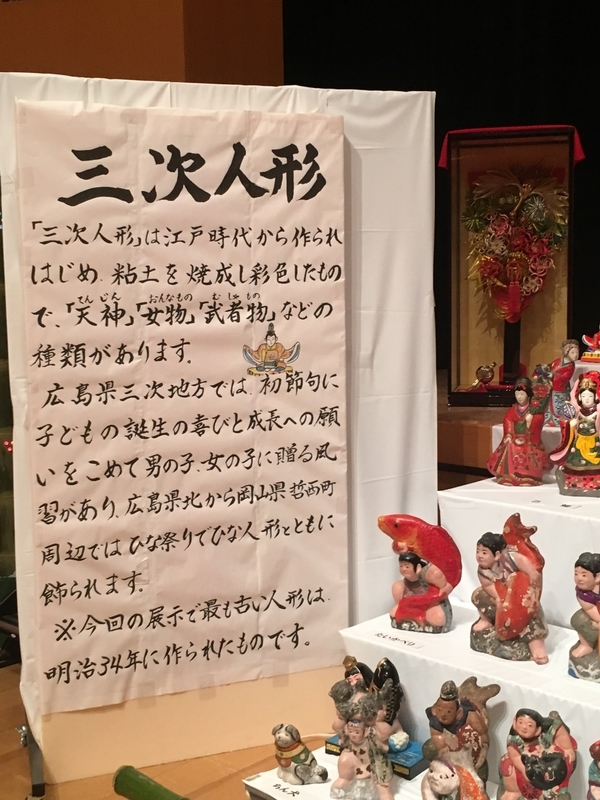 三次人形
「三次人形」は江戸時代から作られ
はじめ、粘土を焼成し彩色したもの
てんじん おんなもの むしゃもの
で、「天神」「女物」「武者物」などの
種類があります。
広島県三次地方では、初節句に
子どもの誕生の喜びと成長への願
いをこめて男の子、女の子に贈る風
習があり、広島県北から岡山県哲西町
周辺ではひな祭りでひな人形とともに
飾られます。
※今回の展示で最も古い人形は、
明治34年に作られたものです。